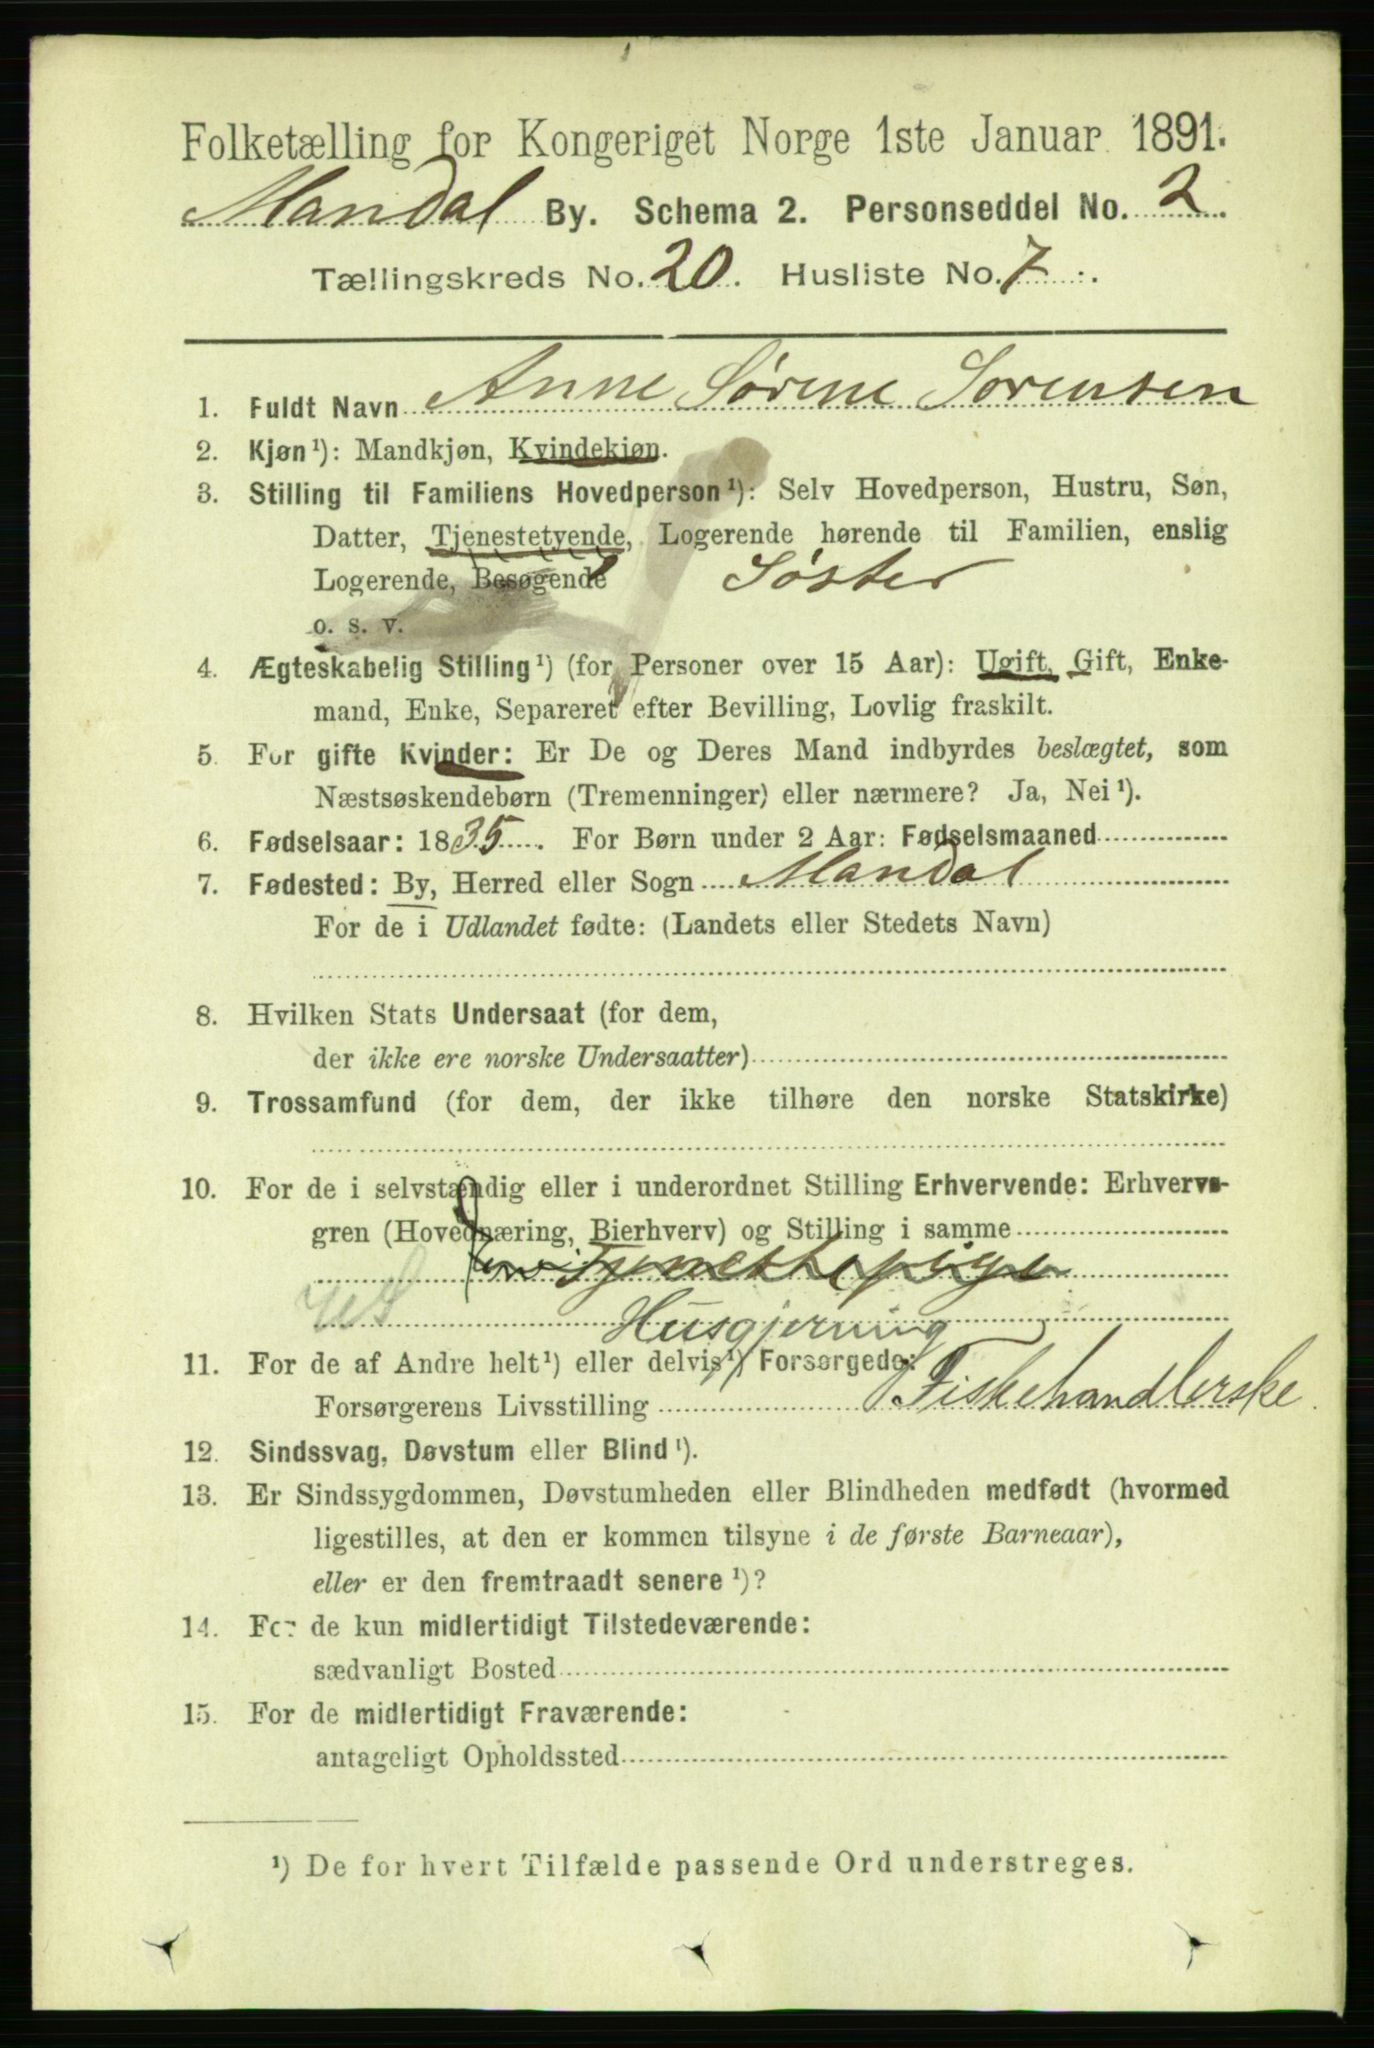 Folketælling for Kongeriget Norge 1ste Januar 1891.
Mandal By. Schema 2. Personseddel No. 2.
Tællingskreds No. 20. Husliste No. 7.
1. Fuldt Navn Anne Sørene Sørensen
2. Kjøn¹): Mandkjøn, Kvindekjøn.
3. Stilling til Familiens Hovedperson¹): Selv Hovedperson, Hustru, Søn,
Datter, Tjenestetyende, Logerende hørende til Familien, enslig
Logerende, Besøgende Søster
o. s. v.
4. Ægteskabelig Stilling¹) (for Personer over 15 Aar): Ugift, Gift, Enke-
mand, Enke, Separeret efter Bevilling, Lovlig fraskilt.
5. For gifte Kvinder: Er De og Deres Mand indbyrdes beslægtet, som
Næstsøskendebørn (Tremenninger) eller nærmere? Ja, Nei¹).
6. Fødselsaar: 1835. For Børn under 2 Aar: Fødselsmaaned
7. Fødested: By, Herred eller Sogn Mandal
For de i Udlandet fødte: (Landets eller Stedets Navn)
8. Hvilken Stats Undersaat (for dem,
der ikke ere norske Undersaatter)
9. Trossamfund (for dem, der ikke tilhøre den norske Statskirke)
10. For de i selvstændig eller i underordnet Stilling Erhvervende: Erhvervs-
gren (Hovednæring, Bierhverv) og Stilling i samme
Tjenestepige
Husgjerning
11. For de af Andre helt¹) eller delvis¹) Forsørgede:
Forsørgerens Livsstilling Fiskehandlerske
12. Sindssvag, Døvstum eller Blind¹).
13. Er Sindssygdommen, Døvstumheden eller Blindheden medfødt (hvormed
ligestilles, at den er kommen tilsyne i de første Barneaar),
eller er den fremtraadt senere¹)?
14. For de kun midlertidigt Tilstedeværende:
sædvanligt Bosted
15. For de midlertidigt Fraværende:
antageligt Opholdssted
¹) De for hvert Tilfælde passende Ord understreges.